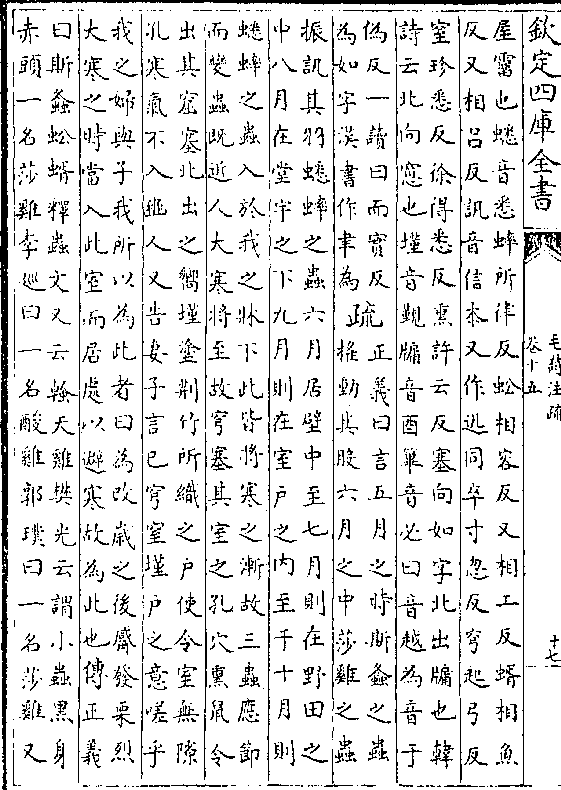 欽定四庫全書
毛詩注疏
卷十五
十七
屋霤也蟋音悉蟀所律反蚣相容反又相工反蝑相魚
反又相呂反訊音信本又作迅同卒寸忽反穹起弓反
窒珍悉反徐得悉反熏許云反塞向如字北出牖也韓
詩云北向窓也墐音覲牖音酉篳音必曰音越為音于
偽反一讀曰而實反
為如字漢書作聿為
疏
正義曰言五月之時斯螽之蟲
搖動其股六月之中莎雞之蟲
振訊其羽蟋蟀之蟲六月居壁中至七月則在野田之
中八月在堂宇之下九月則在室戶之内至于十月則
蟋蟀之蟲入於我之牀下此皆將寒之漸故三蟲應節
而變蟲既近人大寒將至故穹塞其室之孔穴熏鼠令
出其窟塞北出之嚮墐塗荆竹所織之戶使令室無隙
孔寒氣不入人又告妻子言已穹窒墐戶之意嗟乎
我之婦與子我所以為此者曰為改歲之後觱發栗烈
大寒之時當入此室而居處以避寒故為此也傳正義
曰斯螽蚣蝑釋蟲文又云螒天雞樊光云謂小蟲黑身
赤頭一名莎雞李廵曰一名酸雞郭璞曰一名莎雞又